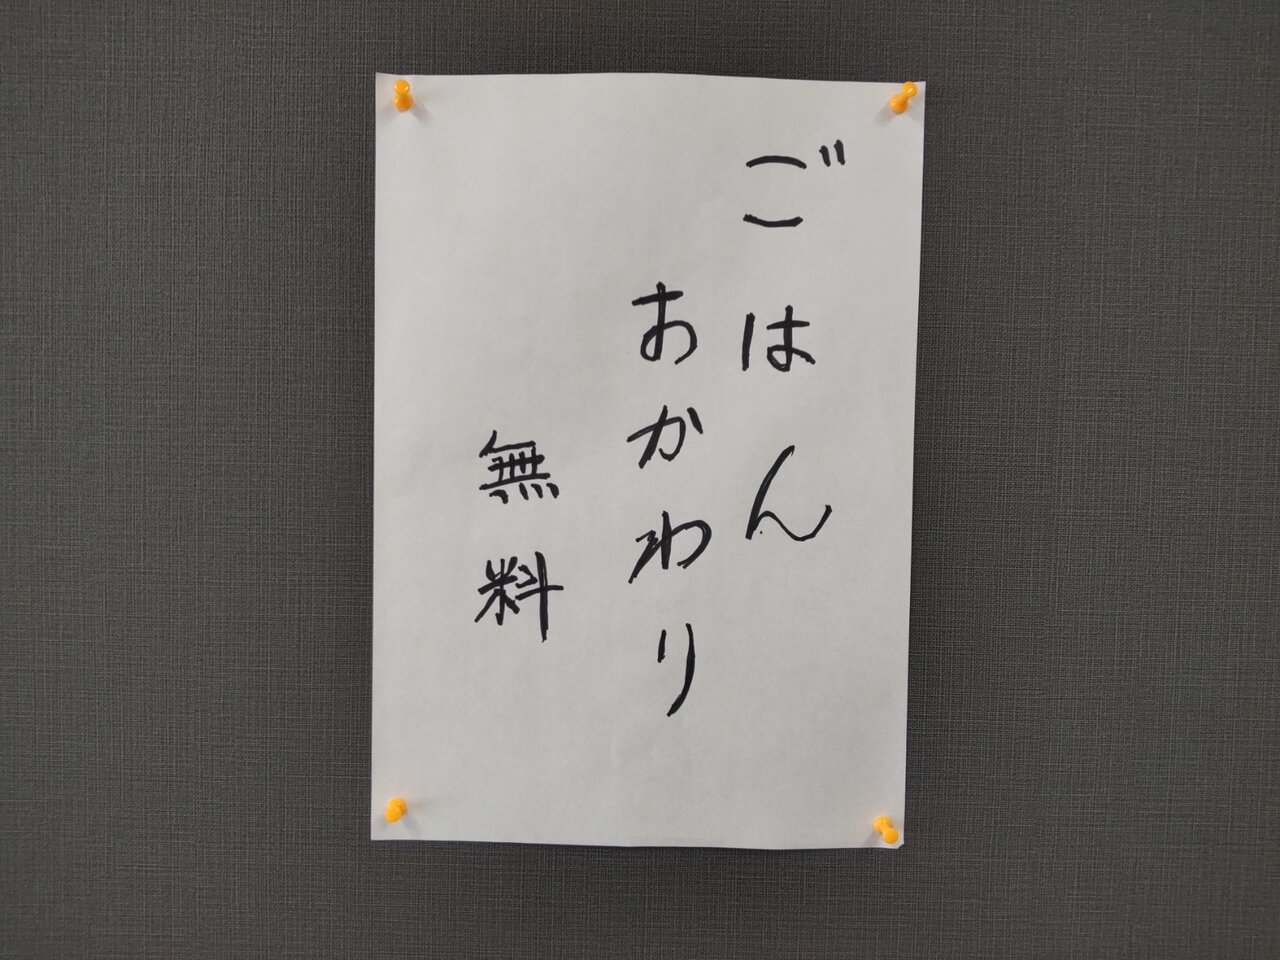 ごはん
おかわり
無料